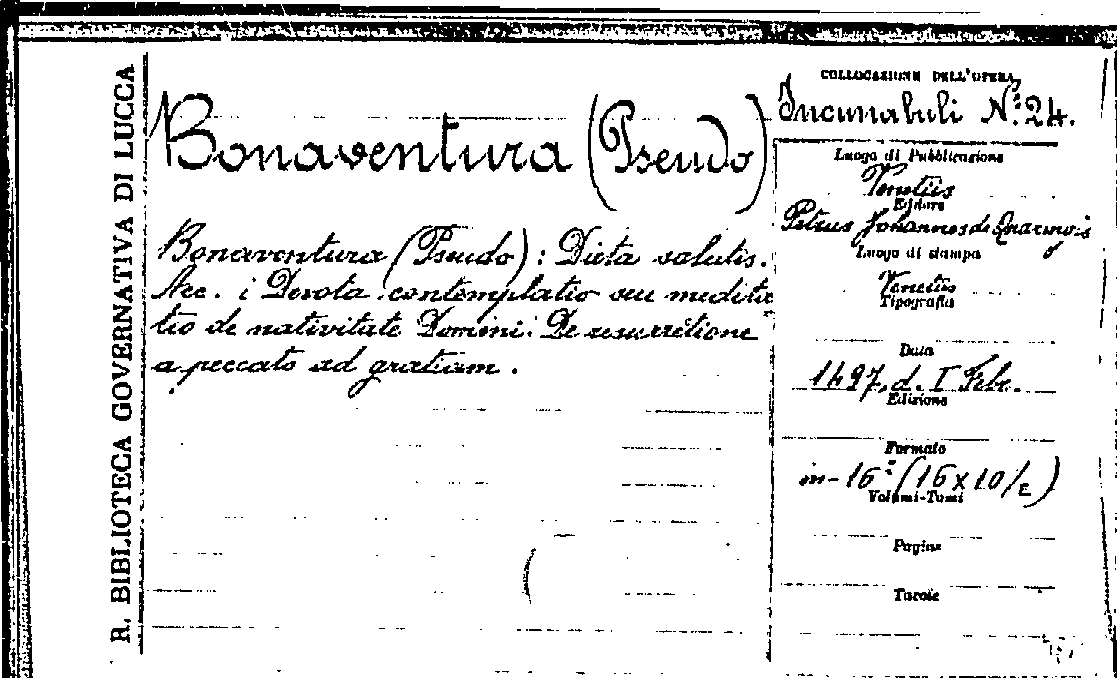 R. BIBLIOTECA GOVERNATIVA DI LUCCA
Bonaventura (Pseudo)
Bonaventura (Pseudo): Dieta salutis.
Acc. : Devota contemplatio seu medita
tio de nativitate Domini: De resurretione
a peccato ad gratiam.
COLLOCAZIONE DELL'OPERA
Incunabuli N.º 24.
Luogo di Pubblicazione
Venetiis
Editore
Petrus Johannes de Quarengis
Luogo di stampa
Venetiis
Tipografia
Data
1497, d. I Febr.
Edizione
Formato
in-16º (16x10/2)
Volumi-Tomi
Pagine
Tavole